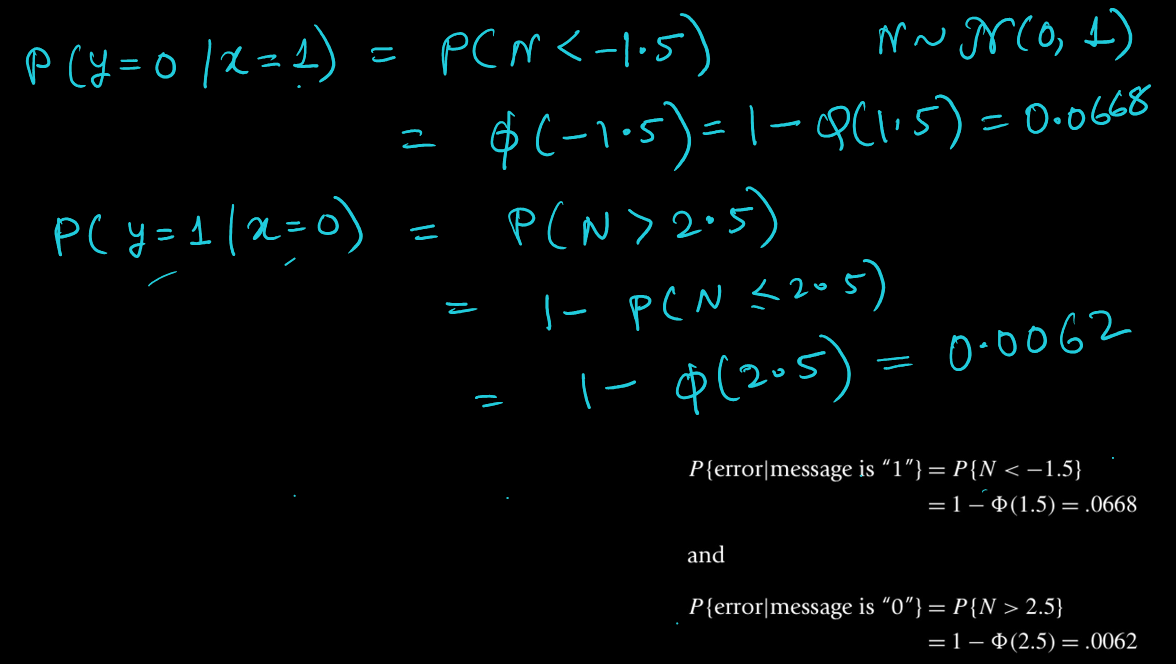 P(y=0 |x=1) = P(N<-1.5) N~𝒩(0, 1)
= ϕ(-1.5) = 1 - φ(1.5) = 0.0668
P(y=1|x=0) = P(N>2.5)
= 1- P(N ≤2.5)
= 1- ϕ(2.5) = 0.0062
P{error|message is “1”} = P{N < −1.5}
= 1 − Φ(1.5) = .0668
and
P{error|message is “0”} = P{N > 2.5}
= 1 − Φ(2.5) = .0062